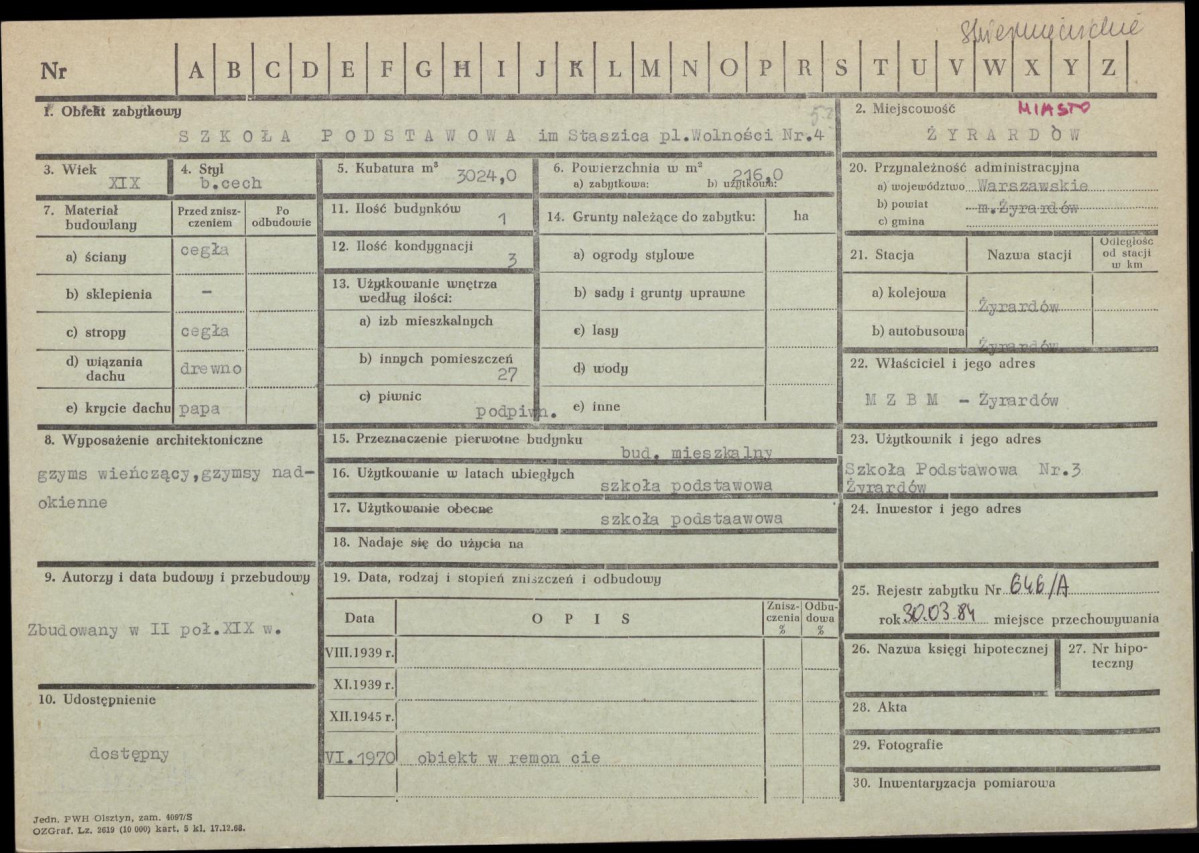 Skierniewickie
Nr A B C D E F G H I J K L M N O P R S T U V W X Y Z
1. Obiekt zabytkowy
57
SZKOŁA PODSTAWOWA im Staszica pl.Wolności Nr.4
2. Miejscowość MIASTO
ŻYRARDÓW
3. Wiek
XIX
4. Styl
b.cech
5. Kubatura m³
3024,0
6. Powierzchnia w m²
216,0
a) zabytkowa: b) użytkowa:
20. Przynależność administracyjna
a) województwo Warszawskie
b) powiat m.Żyrardów
c) gmina
7. Materiał budowlany
Przed zniszczeniem
Po odbudowie
a) ściany cegła
b) sklepienia -
c) stropy cegła
d) wiązania dachu drewno
e) krycie dachu papa
11. Ilość budynków
1
12. Ilość kondygnacji
3
13. Użytkowanie wnętrza według ilości:
a) izb mieszkalnych
b) innych pomieszczeń
27
c) piwnic
podpiwn.
14. Grunty należące do zabytku: ha
a) ogrody stylowe
b) sady i grunty uprawne
c) lasy
d) wody
e) inne
21. Stacja Nazwa stacji Odległość od stacji w km
a) kolejowa
Żyrardów
b) autobusowa
Żyrardów
22. Właściciel i jego adres
M Z B M - Żyrardów
8. Wyposażenie architektoniczne
gzyms wieńczący,gzymsy nad-
okienne
15. Przeznaczenie pierwotne budynku
bud. mieszkalny
16. Użytkowanie w latach ubiegłych
szkoła podstawowa
17. Użytkowanie obecne
szkoła podstaawowa
18. Nadaje się do użycia na
23. Użytkownik i jego adres
Szkoła Podstawowa Nr.3
Żyrardów
24. Inwestor i jego adres
9. Autorzy i data budowy i przebudowy
Zbudowany w II poł.XIX w.
19. Data, rodzaj i stopień zniszczeń i odbudowy
Data O P I S Zniszczenia % Odbudowa %
VIII.1939 r.
XI.1939 r.
XII.1945 r.
VI.1970 obiekt w remon cie
25. Rejestr zabytku Nr 646/A
rok 30.03.84 miejsce przechowywania
26. Nazwa księgi hipotecznej
27. Nr hipoteczny
28. Akta
29. Fotografie
30. Inwentaryzacja pomiarowa
10. Udostępnienie
dostępny
Jedn. PWH Olsztyn, zam. 4097/S
OZGraf. Lz. 2619 (10 000) kart. 5 kl. 17.12.68.